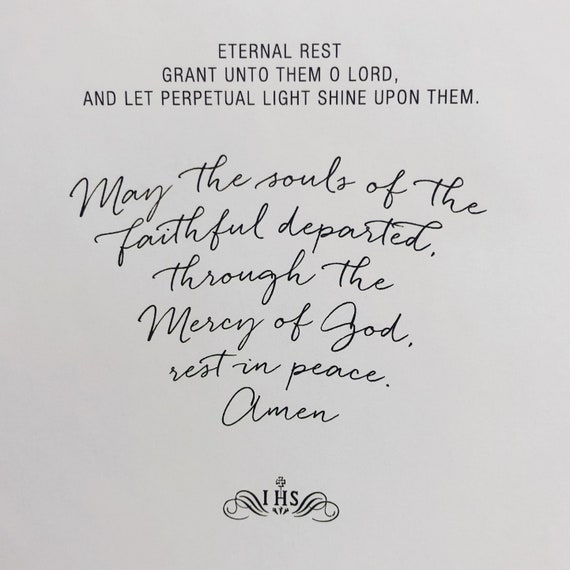 ETERNAL REST
GRANT UNTO THEM O LORD,
AND LET PERPETUAL LIGHT SHINE UPON THEM.
May the souls of the
faithful departed,
through the
Mercy of God,
rest in peace.
Amen
IHS